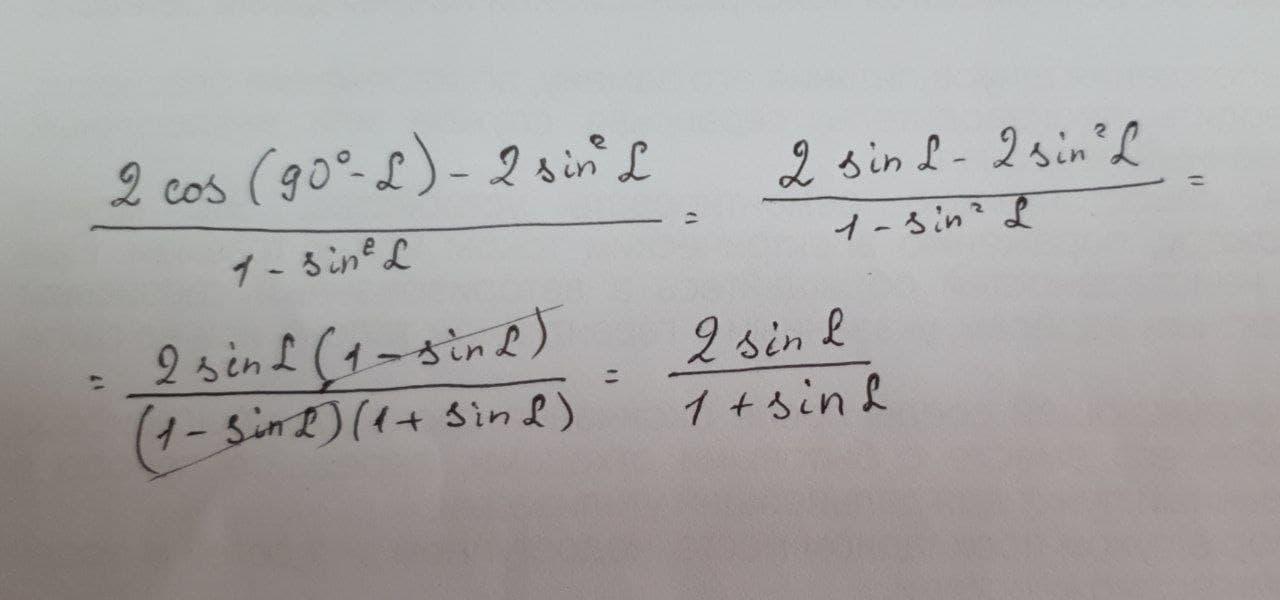 2 cos (90° - α) - 2 sin² α / 1 - sin² α = 2 sin α - 2 sin² α / 1 - sin² α =
= 2 sin α (1 - sin α) / (1 - sin α)(1 + sin α) = 2 sin α / 1 + sin α